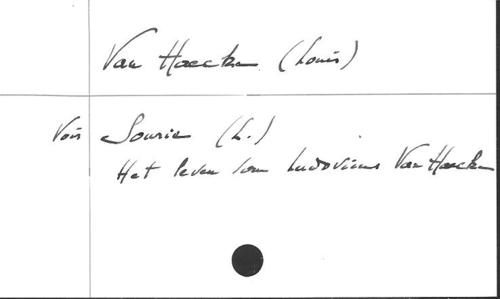 Van Haecke (Louis)
Voir Sourie (L.)
Het leven van Ludovicus Van Haecke